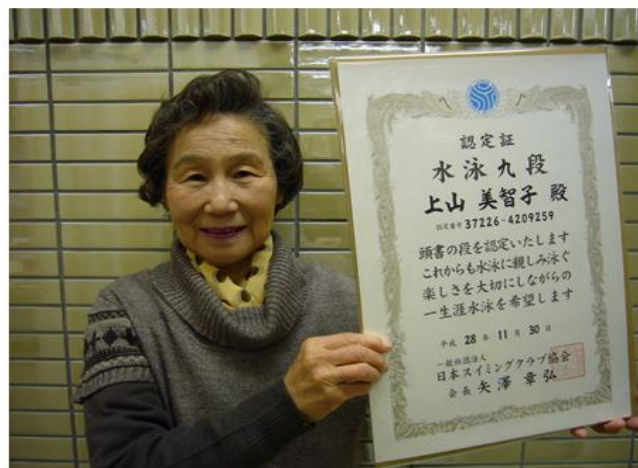 認定証
水泳九段
上山 美智子 殿
認定番号 37226-4209259
頭書の段を認定いたします
これからも水泳に親しみ泳ぐ
楽しさを大切にしながらの
一生涯水泳を希望します
平成 28 年 11 月 30 日
一般社団法人
日本スイミングクラブ協会
会長 矢澤 章弘